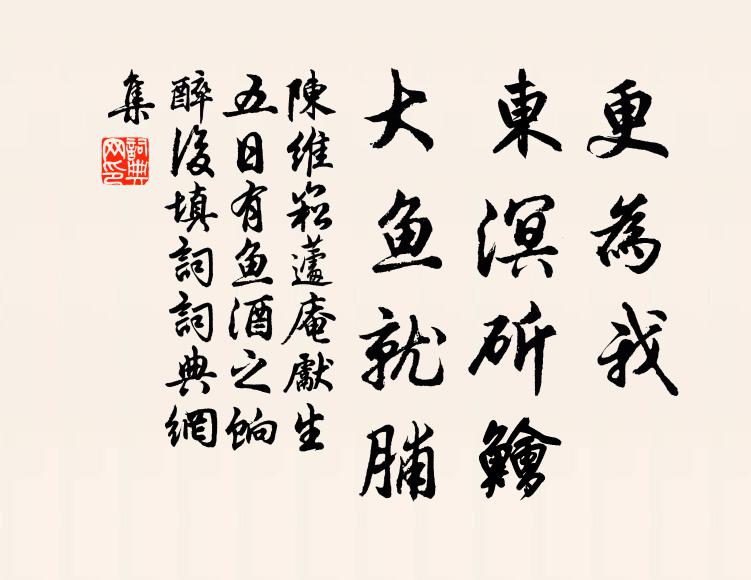 更為我
東溟斫鱠
大鱼就脯
陳維崧蘧庵獻生
五日有鱼酒之餉
醉後填詞詞典網
集
詞典网印